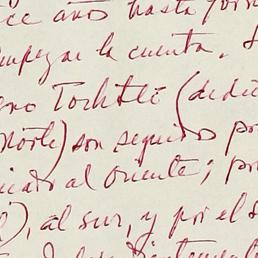 ce años hasta for
empezar la cuenta.
Tochtli (dedic
norte) son seguidos po
al oriente; po
), al sur, y por el s